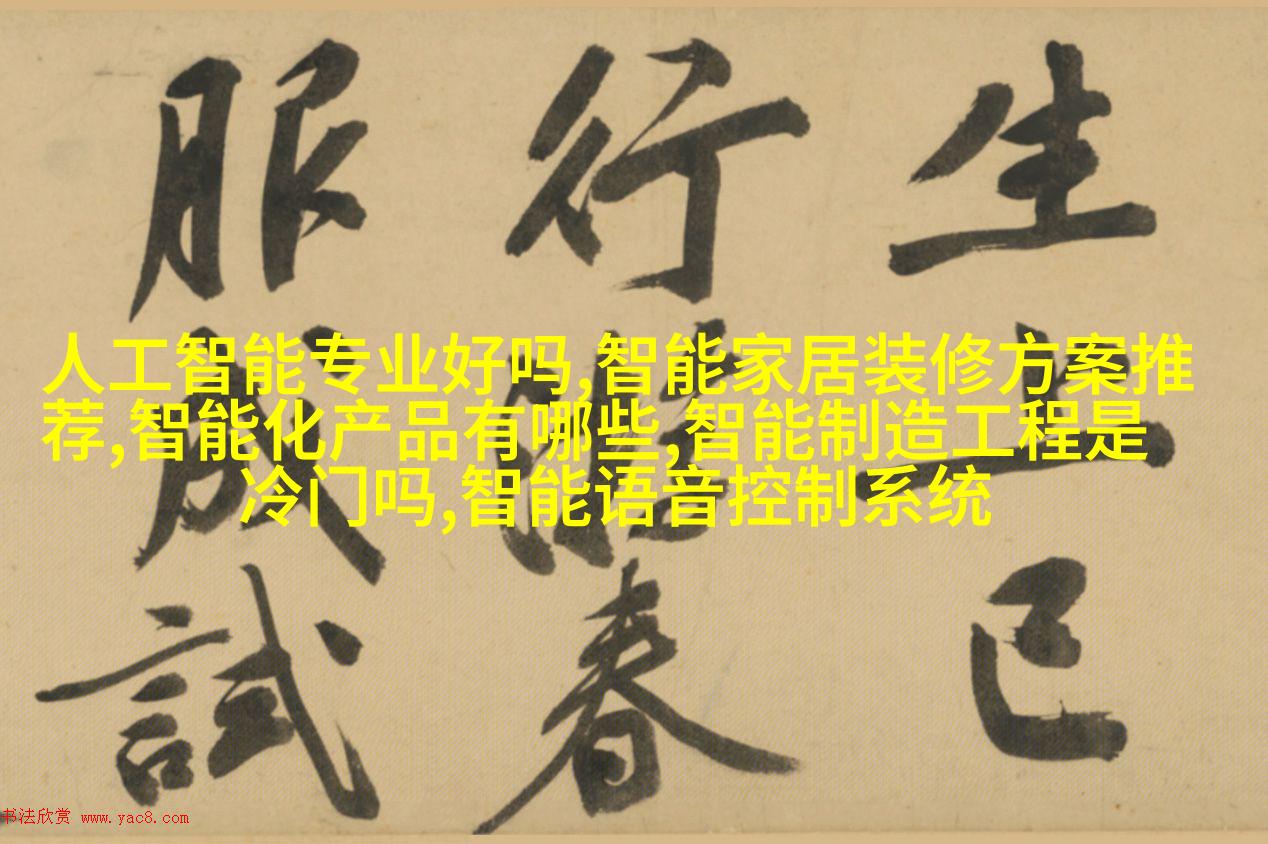 生上巳
行春
服成試
人工智能专业好吗,智能家居装修方案推
荐,智能化产品有哪些,智能制造工程是
冷门吗,智能语音控制系统
书法欣赏 www.yac8.com